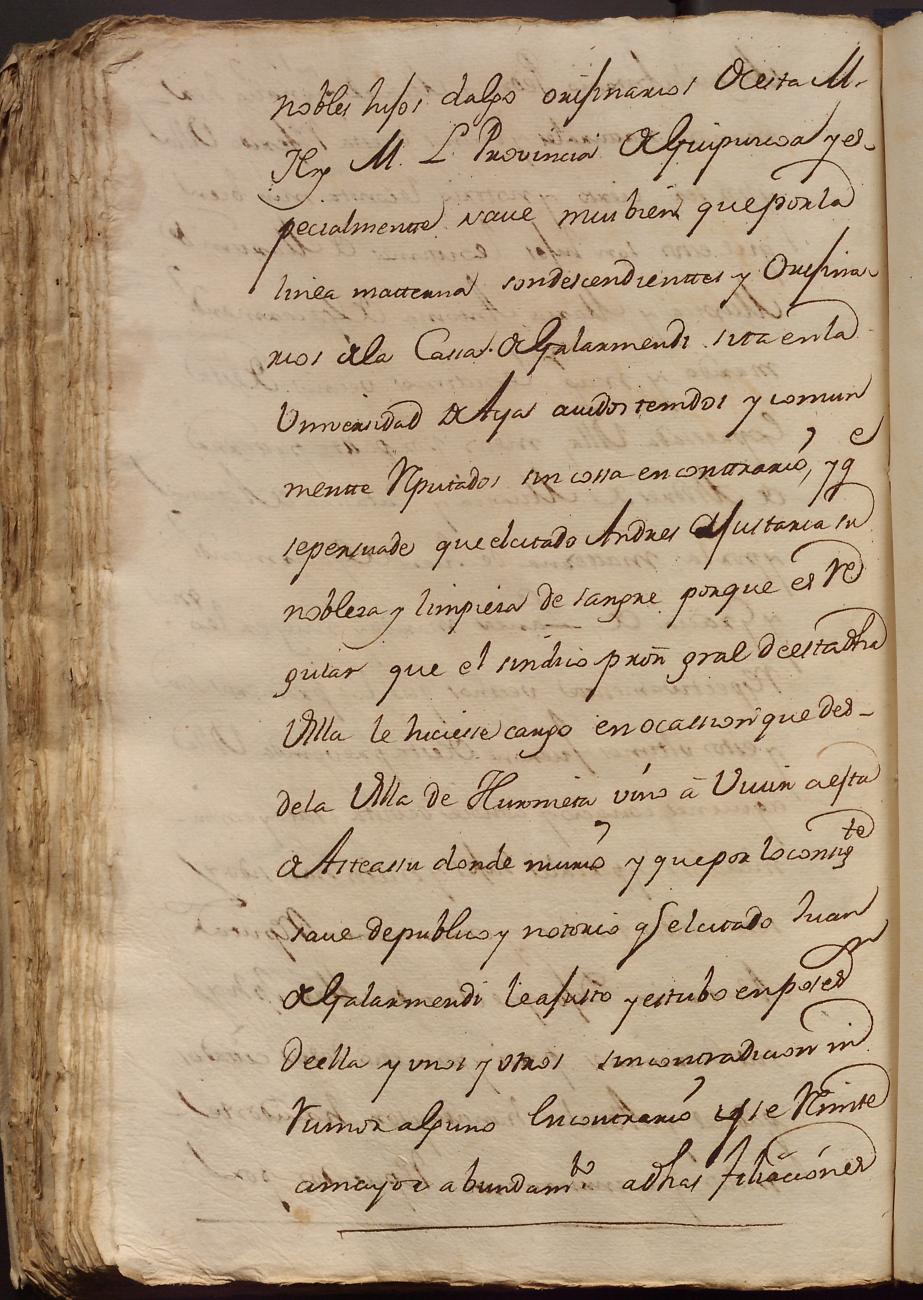 nobles hijos dalgo originarios Desta M.
N. y M. L. Provincia de Guipuzcoa y es-
pecialmentte save mui bien que por la
linea matterna son descendienttes y Origina-
rios de la Cassa de Galarmendi sita en la
Universidad de Aya avidos tenidos y comun
mentte Reputados sin cossa en conttrario, y qe
se persuade que el citado Andres ajustaria su
nobleza y limpieza de sangre porque es Re
gular que el sindico pror gral de esta dha
Villa le hiciesse cargo en ocassion que des-
de la Villa de Hurnieta vino à Vivir a esta
de Asteassu donde murio y que por lo consigte
save de publico y notorio qe el citado Juan
de Galarmendi le ajusto y estubo en posesn
de ella y unos y otros sin contradicion ni
rumor alguno en contrario y se Remite
a mayor abundamto a dhas filiaciones